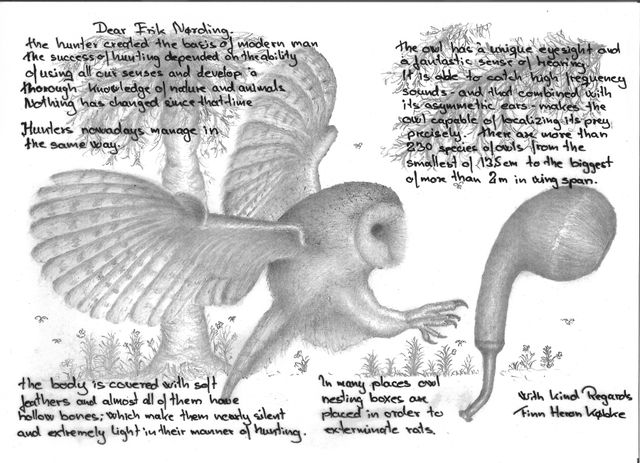 Dear Erik Nørding.
the hunter created the basis of modern man
the success of hunting depended on the ability
of using all our senses and develop a
thorough knowledge of nature and animals
Nothing has changed since that time
Hunters nowadays manage in
the same way.
the owl has a unique eyesight and
a fantastic sense of hearing
It is able to catch high frequency
sounds - and that combined with
its asymmetric ears - makes the
owl capable of localizing its prey
precisely. There are more than
230 species of owls from the
smallest of 13,5 cm to the biggest
of more than 2m in wing span.
the body is covered with soft
feathers and almost all of them have
hollow bones; which make them nearly silent
and extremely light in their manner of hunting.
In many places owl
nesting boxes are
placed in order to
exterminate rats.
With kind Regards
Finn Heron Købke